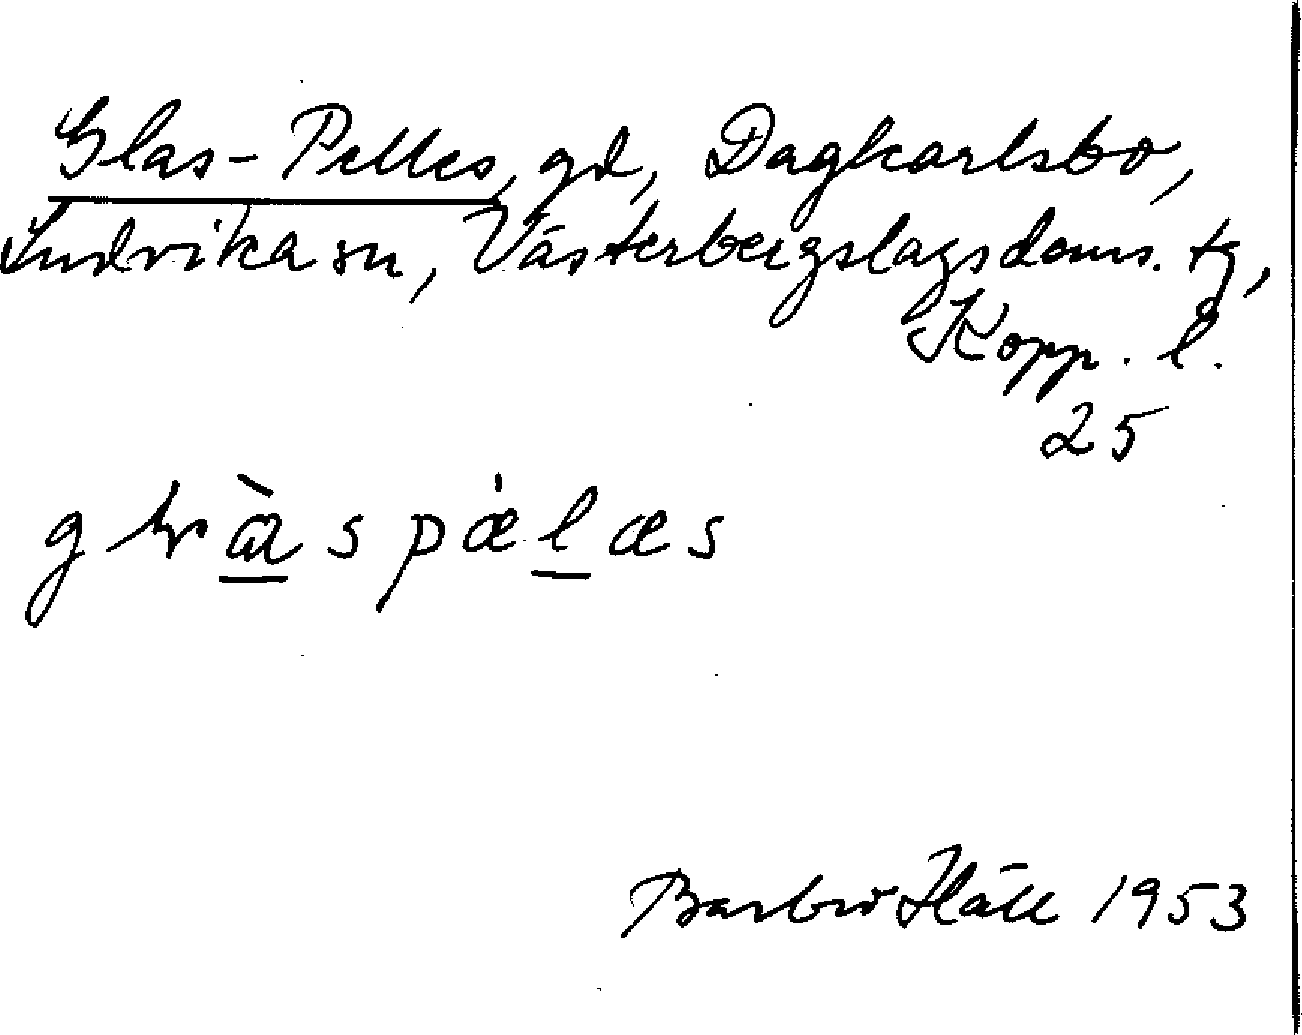 Glas-Pelles, gd, Dagkarlsbo,
Ludvika sn, Västerbergslagsdoms. tg,
Kopp. l.
25
Barbro Häll 1953